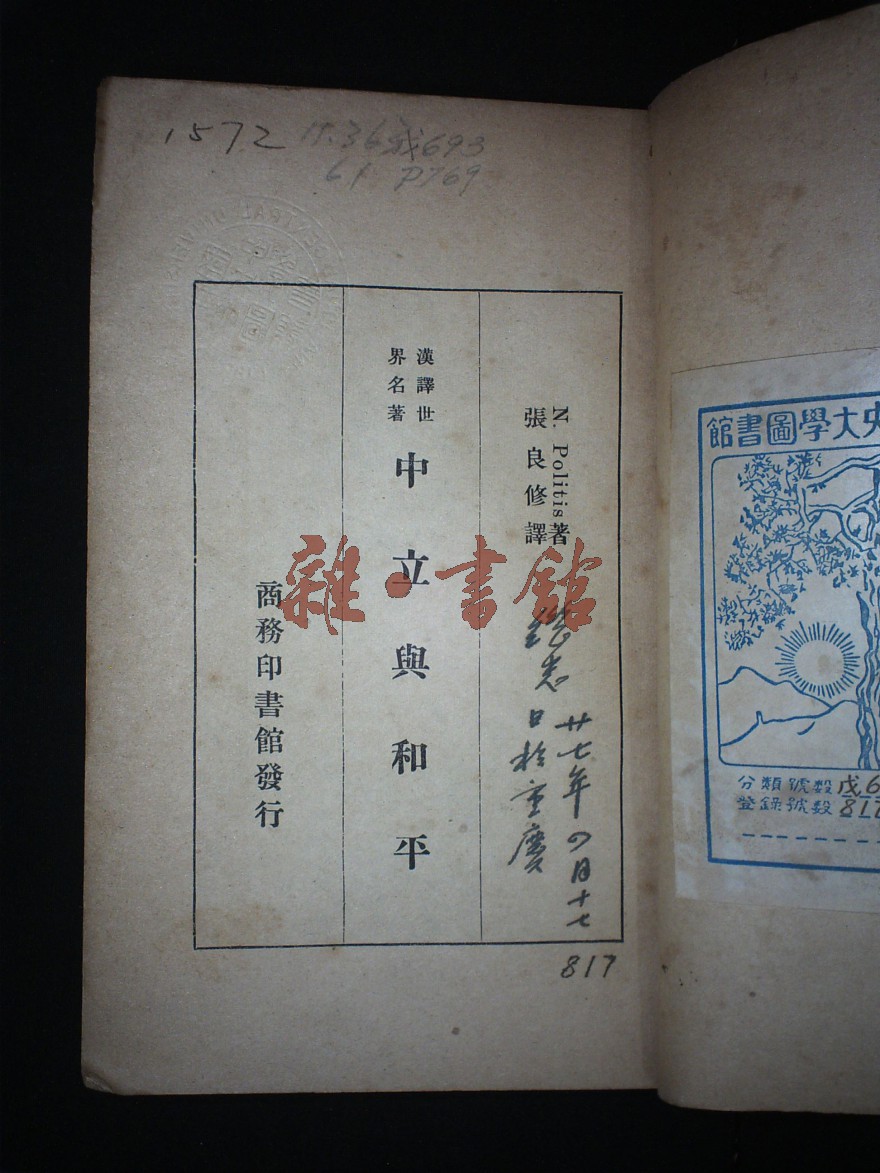 1572
693
P769
N. Politis著
張良修譯
漢譯世
界名著
中立與和平
商務印書館發行
雜·書館
廿七年四月十七
日於重慶
817
央大學圖書館
分類號數戊6
登錄號數817